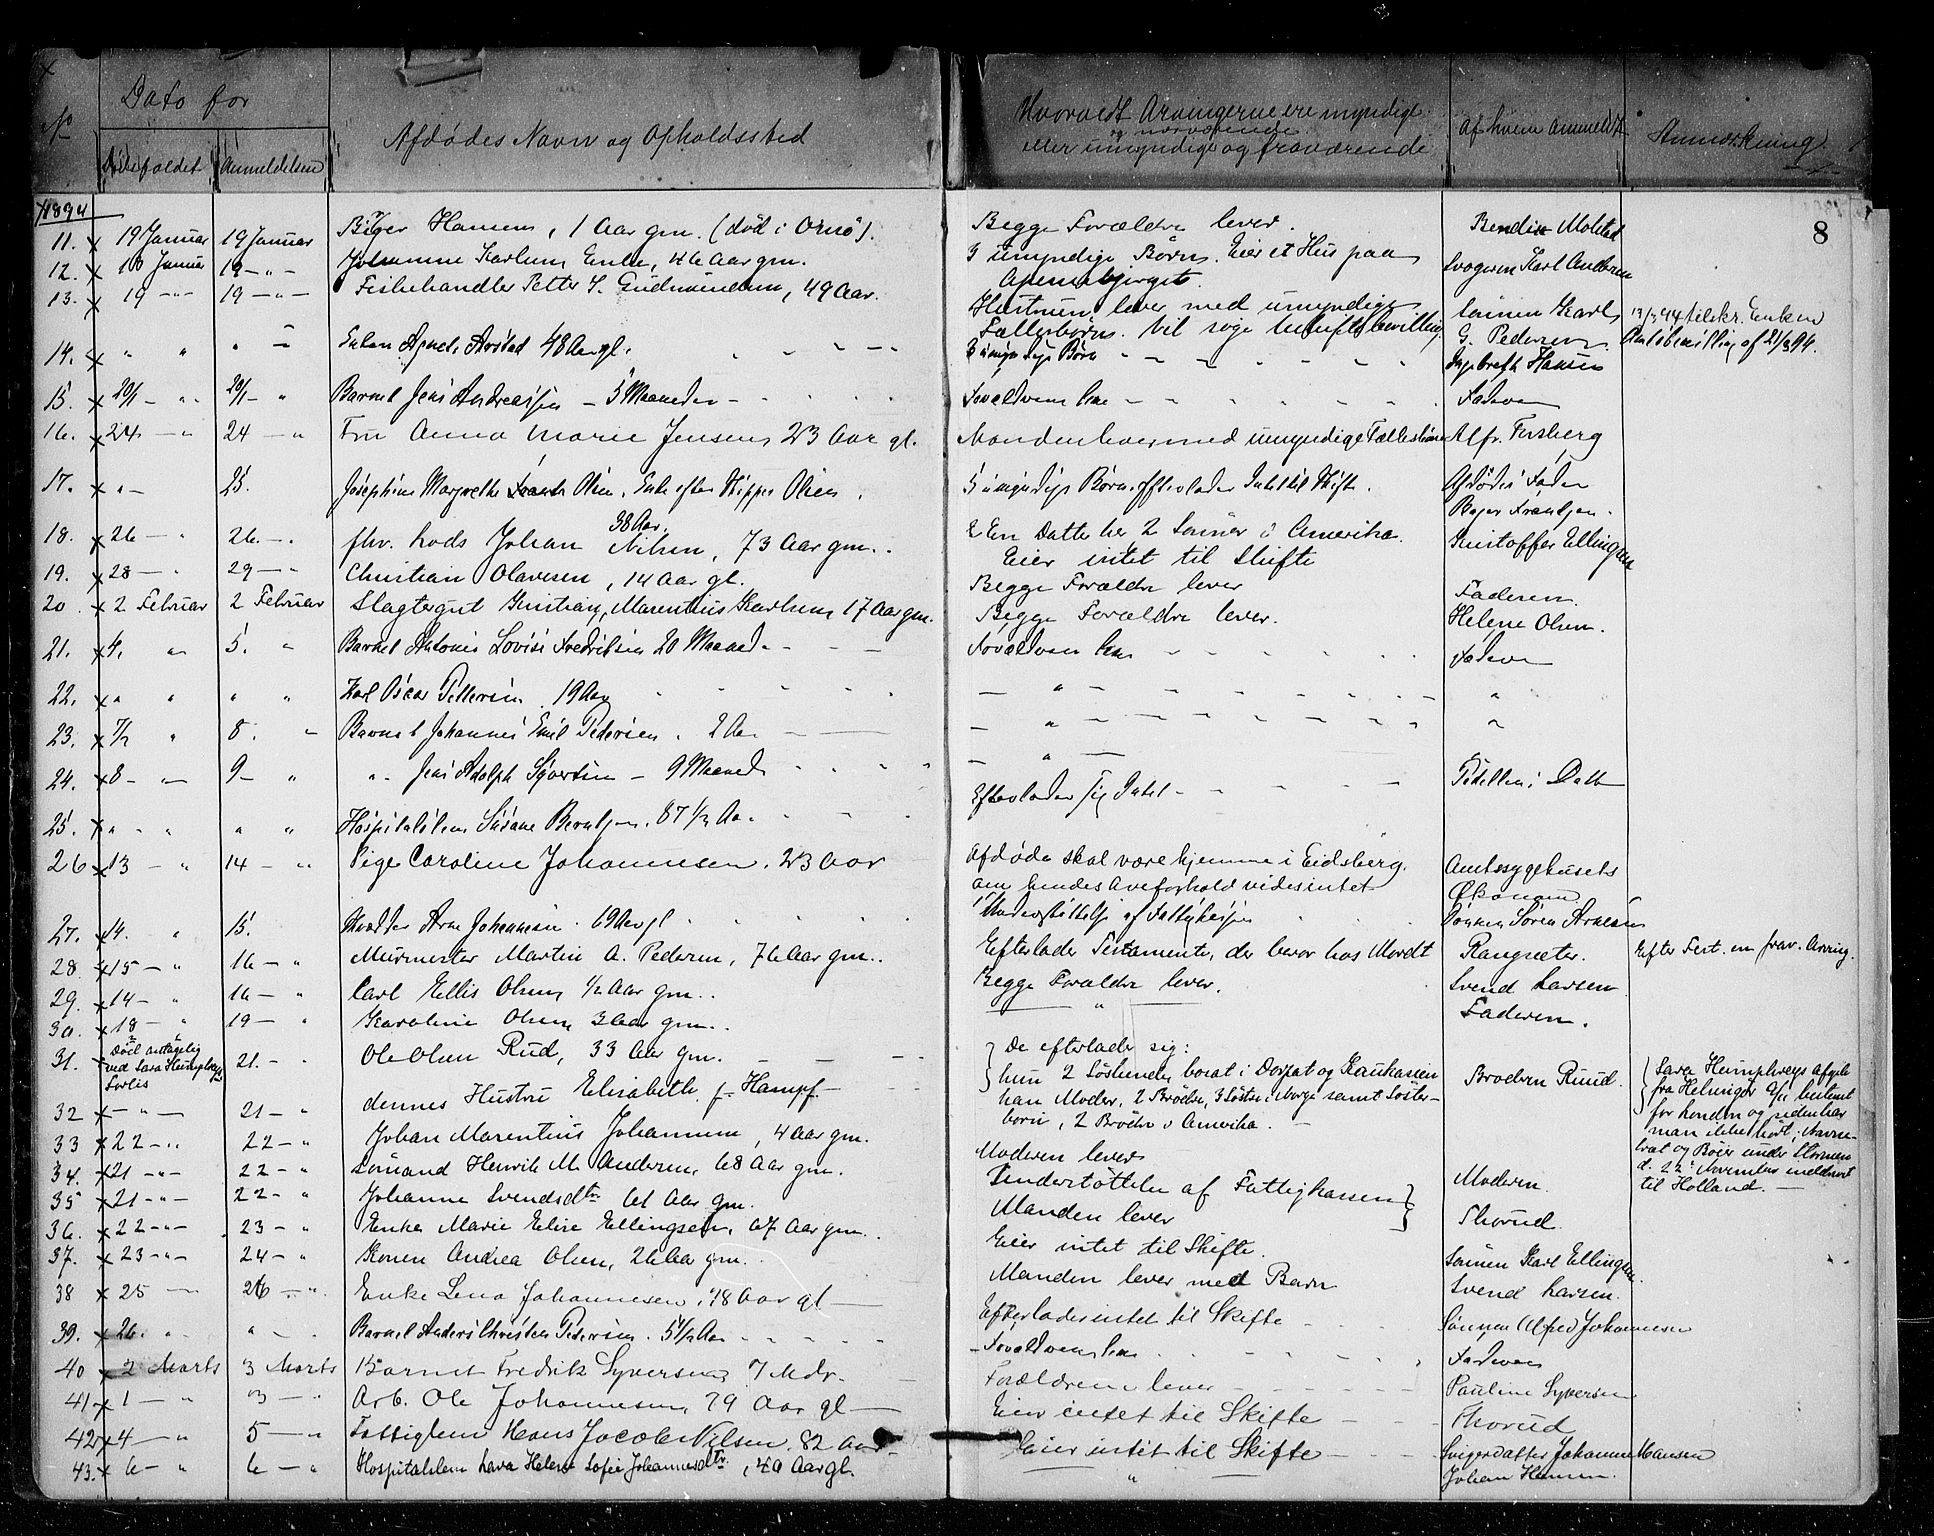 No
Dato for
Dödsfaldet
Anmeldelsen
Afdödes Navn og Opholdssted
Hvorvidt Arvingerne ere myndige
og nærværende
eller umyndige og fraværende
Af hvem anmeldt
Anmærkning
8
1894
11. 19 Januar 19 Januar Birger Hansen, 1 Aar gm. (död i Ornö). Begge Forældre lever. Bendix Molstad
12. 18 Januar 19 — " — Johanne Karlsen Enke, 46 Aar gm. 3 umyndige Börn. Eier et Hus paa Svogeren Karl Andersen
Apenesbjerget.
13. 19 — " — 19 — " — Fiskehandler Petter S. Gudmundsen, 49 Aar. Hustruen lever med umyndige Sönnen Karl 13/3 94 tilskr. Enken
Fællesbörn. Vil söge Uskiftebevilling. G. Pedersen. Amtsbevilling af 21/3 94.
14. " " " — Enken Agnete Arstad 48 Aar gl. 3 umyndige Börn Ingebreth Hansen
15. 20/1 — " 20/1 — " Barnet Jens Andreassen — 5 Maaneder Forældrene leve Faderen
16. 24 — " 24 — " Fru Anna Marie Jensen 23 Aar gl. Manden lever med umyndige Fællesbörn Alfr. Forsberg
17. " — 25. Josephine Margrethe Olsen, Enke efter Skipper Olsen. 5 umyndige Börn. Efterlader Intet til Skifte. Afdödes Fader
38 Aar. Bojer Frantzen.
18. 26 — " 26 — " fhv. Lods Johan Nilsen, 73 Aar gm. En Datter her, 2 Sönner i Amerika. Kristoffer Ellingsen
Eier intet til Skifte
19. 28 — " 29 — " Christian Olavesen, 14 Aar gl. Begge Forældre lever Faderen.
20. 2 Februar 2 Februar Slagtergut Kristian Marentius Karlsen, 17 Aar gm. Begge Forældre lever. Helene Olsen.
21. 4. " 5. " Barnet Antonie Lovise Fredriksen 20 Maaneder Forældrene leve Faderen
22. " " " " Karl Oscar Pettersen 19 Aar — " — "
23. 7/2 " 8. " Barnet Johannes Emil Pedersen. 2 Aar — " — "
24. 8 — " 9 — " " Jens Adolph Syversen — 9 Maaneder — " —
25. " — " " " Hospitalslem Susane Berntsen. 87 1/2 Aar Efterlader sig Intet Pedellen i Dalb
26. 13 — " 14 — " Pige Caroline Johannesen. 23 Aar Afdöde skal være hjemme i Eidsberg. Amtssygehusets
om hendes Arveforhold vides intet Økonom
27. 14. " 15. Arne Johannesen. 69 Aar gl Understöttelse af Fattigkassen Sönnen Sören Arnesen
28. 15 — " 16 — " Murmester Martin A. Pedersen, 76 Aar gm. Efterlader Testamente, der beror hos Mordt Rangsæter. Efter Test. en frav. Arving.
29. 14 — " 16 — " Carl Ellis Olsen 1/2 Aar gm. Begge Forældre lever. Svend Larsen
30. 18 — " 19 — " Karoline Olsen 3 Aar gm. — " — Faderen.
31. Död antagelig
ved Sara Humphreys
Forlis
21. — " Ole Olsen Rud, 33 Aar gm. De efterlader sig:
hun 2 Söskende, bosat i Dorpat og Kaukasien
han Moder, 2 Brödre, 3 Söstre i Norge samt Söster-
börn, 2 Brödre i Amerika. —
Broderen Ruud.
Sara Humphreys afgik
fra Helsingör 9/11 bestemt
for London og siden har
man ikke hört; Navne-
bræt og Böier under Stormen
d. 22 November inddrevet
til Holland. —
32 — " — 21 — " dennes Hustru Elisabeth, f. Hampf.
33 22 — " 22 — " Johan Marentius Johannesen, 4 Aar gm. Moderen lever Moderen.
34. 21 — " — 22 — " Sömand Henrik M. Andersen, 68 Aar gm. Understöttelse af Fattigkassen Thorud.
35 21 — " — 22 — " Johanne Svendsdtr 61 Aar gm. Manden lever
36. 22 — " — 23 — " Enke Marie Elise Ellingsen, 67 Aar gm. Eier intet til Skifte. Sönnen Karl Ellingsen
37. 23 — " — 24 — " Konen Andrea Olsen, 26 Aar gm. Manden lever med Barn Svend Larsen.
38 25 — 26 — " Enke Lena Johannesen, 48 Aar gl — Efterlader intet til Skifte Sönnen Alfred Johannesen
39. 26. " " Barnet Anders Christen Pedersen. 5 1/2 Aar Forældrene leve Faderen
40 2 Marts 3 Marts Barnet Fredrik Syversen 7 Mdr. Forældrene lever Pauline Syversen
41 1 — " 3 — " Arb. Ole Johannesen, 79 Aar gl — Eier intet til Skifte Thorud
42 4 — " 5 — " Fattiglem Hans Jacob Nilsen. 82 Aar Eier intet til Skifte Svigerdatter Johanne Hansen
43. 6 — " 6 — " Hospitalslem Lava Helene Sofie Johannesdtr, 40 Aar gl. " Johan Hansen.